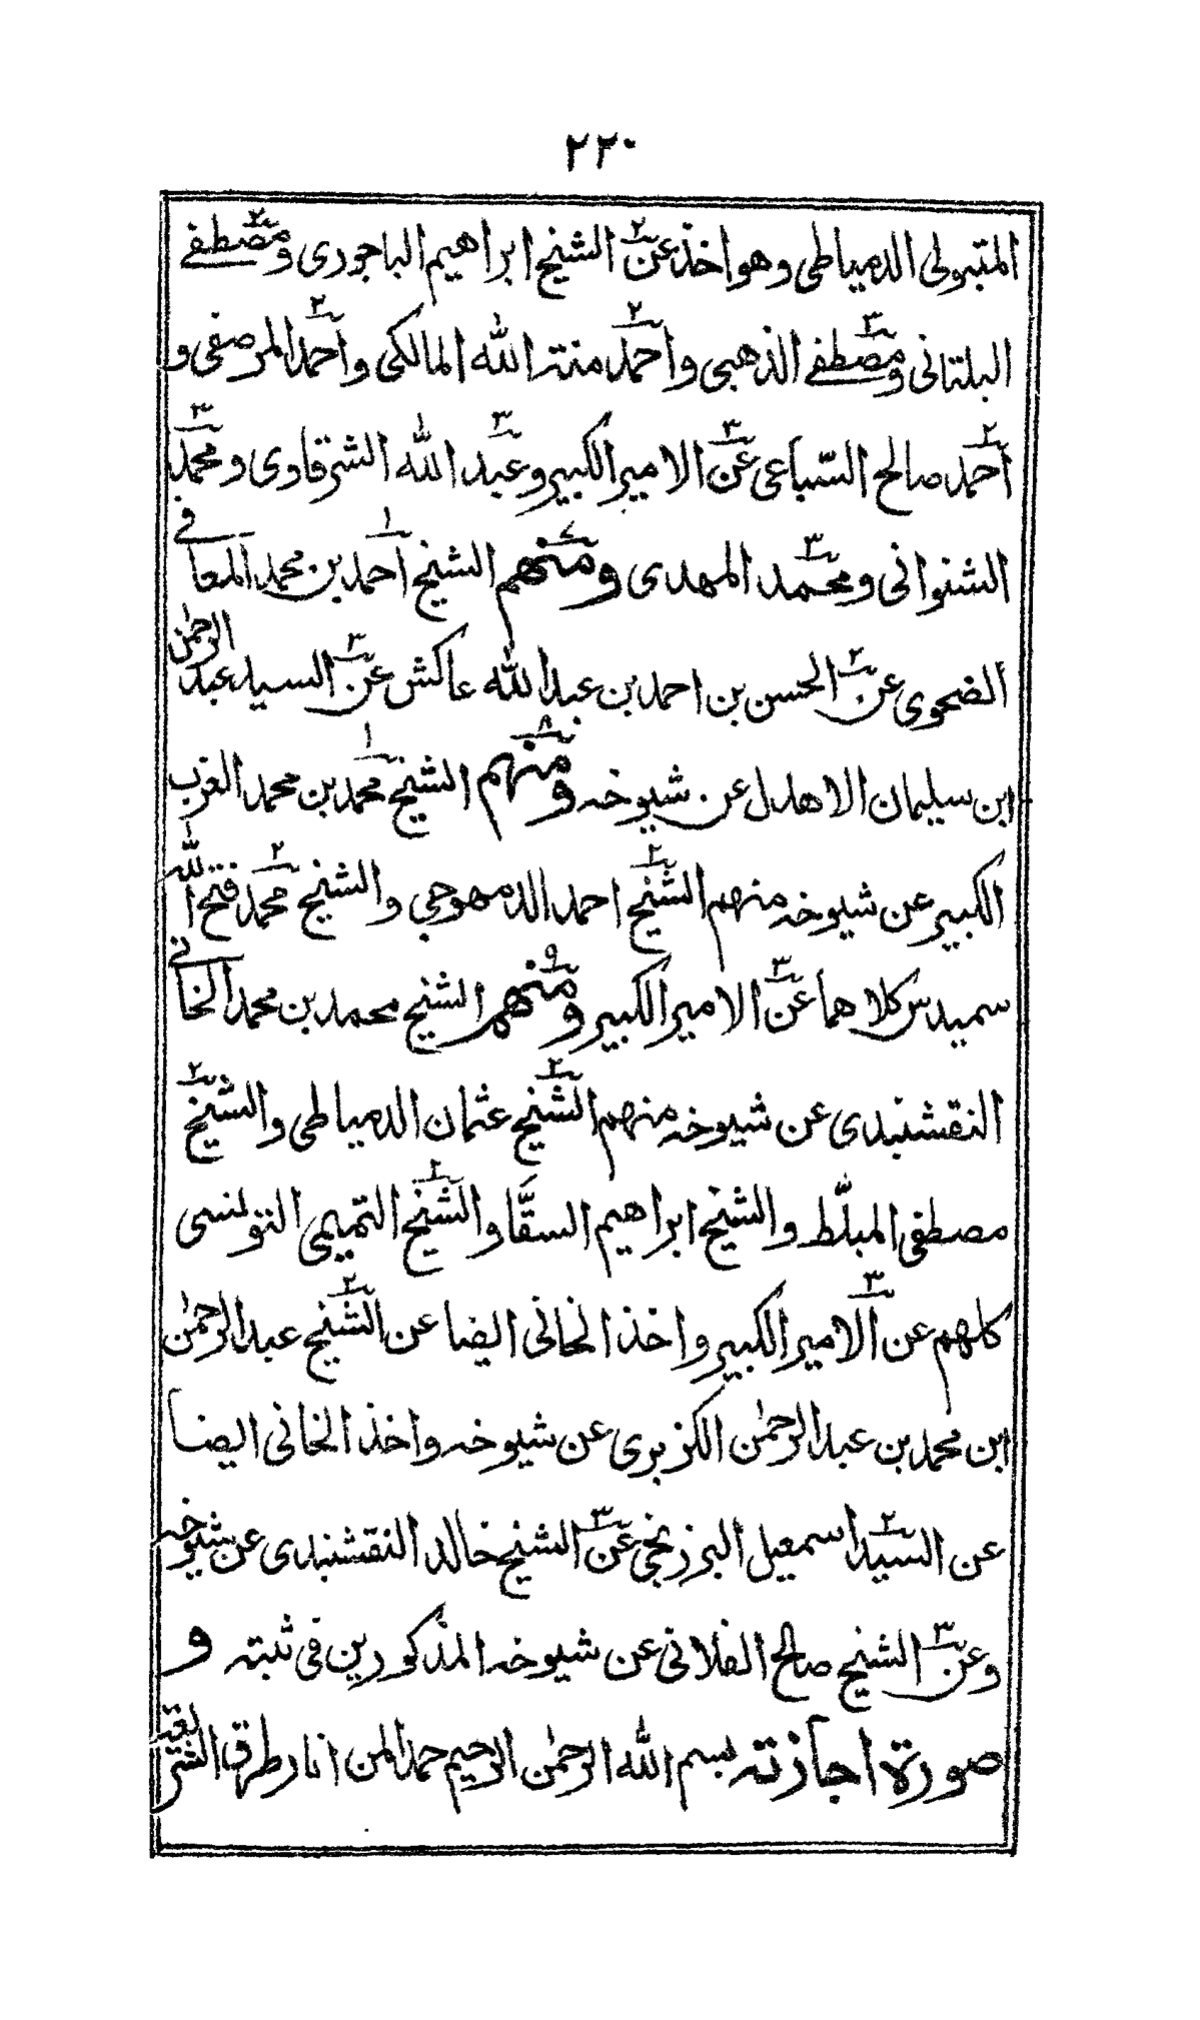 ٢٢٠
المتبولى الدمياطى وهو اخذ عن٢ الشيخ ابراهيم الباجورى ومصطفے٢
البلتانى ومصطفے٣ الذهبى واحمد٢ منة الله المالكى واحمد٢ المرصفى و
احمد٢ صالح السّباعى عن٣ الامير الكبير وعبد٣ الله الشرقاوى ومحمد٣
الشنوانى ومحمد٣ المهدى ومنهم٧ الشيخ احمد١ بن محمد المعافى
الضحوى عن٢ الحسن بن احمد بن عبد الله عاكش عن٣ السيد عبد الرحمٰن
ابن سليمان الاهدل عن شيوخه ومنهم٨ الشيخ محمد١ بن محمد العزب
الكبير عن شيوخه منهم الشيخ٢ احمد الدمهوجى والشيخ محمد٢ فتح الله
سميدس كلاهما عن٣ الامير الكبير ومنهم٩ الشيخ محمد بن محمد الخانى
النقشنبدى عن شيوخه منهم الشيخ٢ عثمان الدمياطى والشيخ٢
مصطفى المبلّط والشيخ ابراهيم السقَّا والشيخ٢ التميمى التونسى
كلهم عن الامير٣ الكبير واخذ الخانى ايضا عن الشيخ٢ عبد الرحمٰن
ابن محمد بن عبد الرحمٰن الكزبرى عن شيوخه واخذ الخانى ايضا
عن السيد٢ اسمعيل البرزنجى عن٣ الشيخ خالد النقشنبدى عن شيوخه
وعن٣ الشيخ صالح الفلانى عن شيوخه المذكورين فى ثبته و
صورة اجازته بسم الله الرحمٰن الرحيم حمدا لمن انار طرق الشريعة